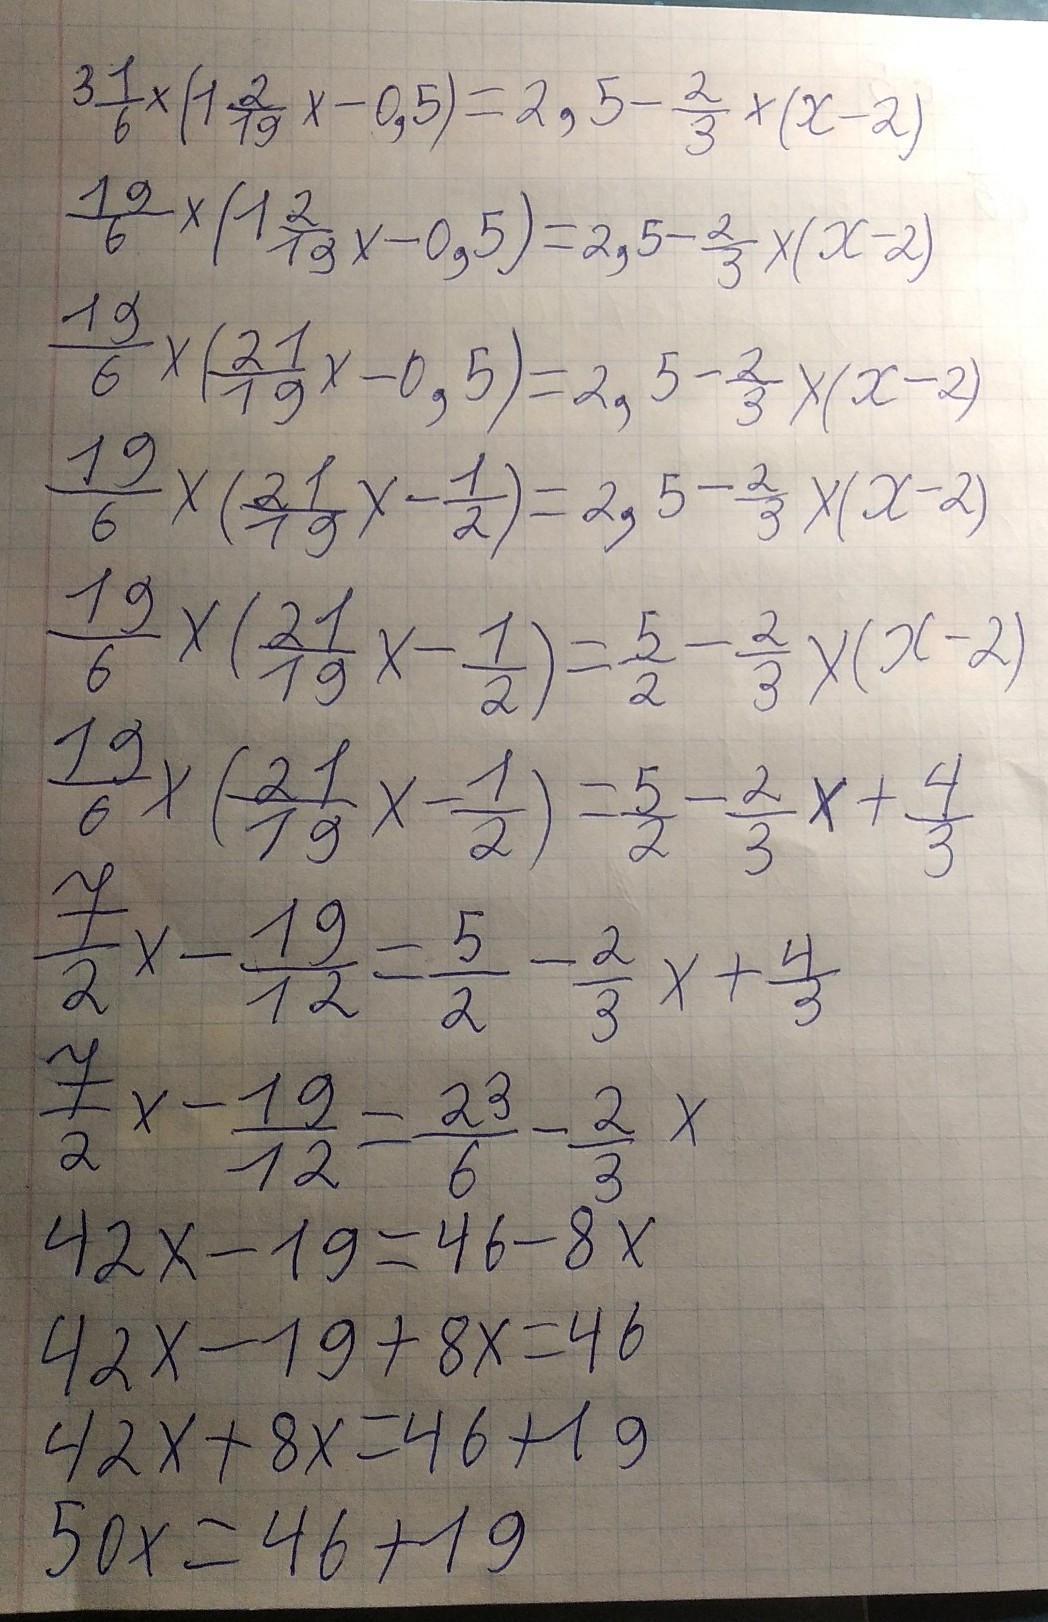 3 1/6 x (1 2/19 x - 0,5) = 2,5 - 2/3 x (x - 2)
19/6 x (1 2/19 x - 0,5) = 2,5 - 2/3 x (x - 2)
19/6 x (21/19 x - 0,5) = 2,5 - 2/3 x (x - 2)
19/6 x (21/19 x - 1/2) = 2,5 - 2/3 x (x - 2)
19/6 x (21/19 x - 1/2) = 5/2 - 2/3 x (x - 2)
19/6 x (21/19 x - 1/2) = 5/2 - 2/3 x + 4/3
7/2 x - 19/12 = 5/2 - 2/3 x + 4/3
7/2 x - 19/12 = 23/6 - 2/3 x
42x - 19 = 46 - 8x
42x - 19 + 8x = 46
42x + 8x = 46 + 19
50x = 46 + 19